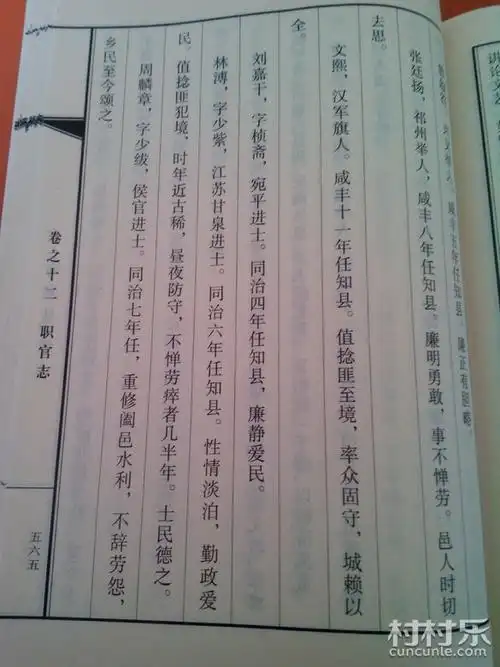 举人。咸丰五年任知县,廉正有胆略。
张廷扬,祁州举人,咸丰八年任知县。廉明勇敢,事不惮劳。邑人时切
去思。
文熙,汉军旗人。咸丰十一年任知县。值捻匪至境,率众固守,城赖以
全。
刘嘉干,字桢斋,宛平进士。同治四年任知县,廉静爱民。
林溥,字少紫,江苏甘泉进士。同治六年任知县。性情淡泊,勤政爱
民。值捻匪犯境,时年近古稀,昼夜防守,不惮劳瘁者几半年。士民德之。
周麟章,字少绂,侯官进士。同治七年任,重修阖邑水利,不辞劳怨,
乡民至今颂之。
卷之十二 职官志
五六五
村村乐
cuncunle.com